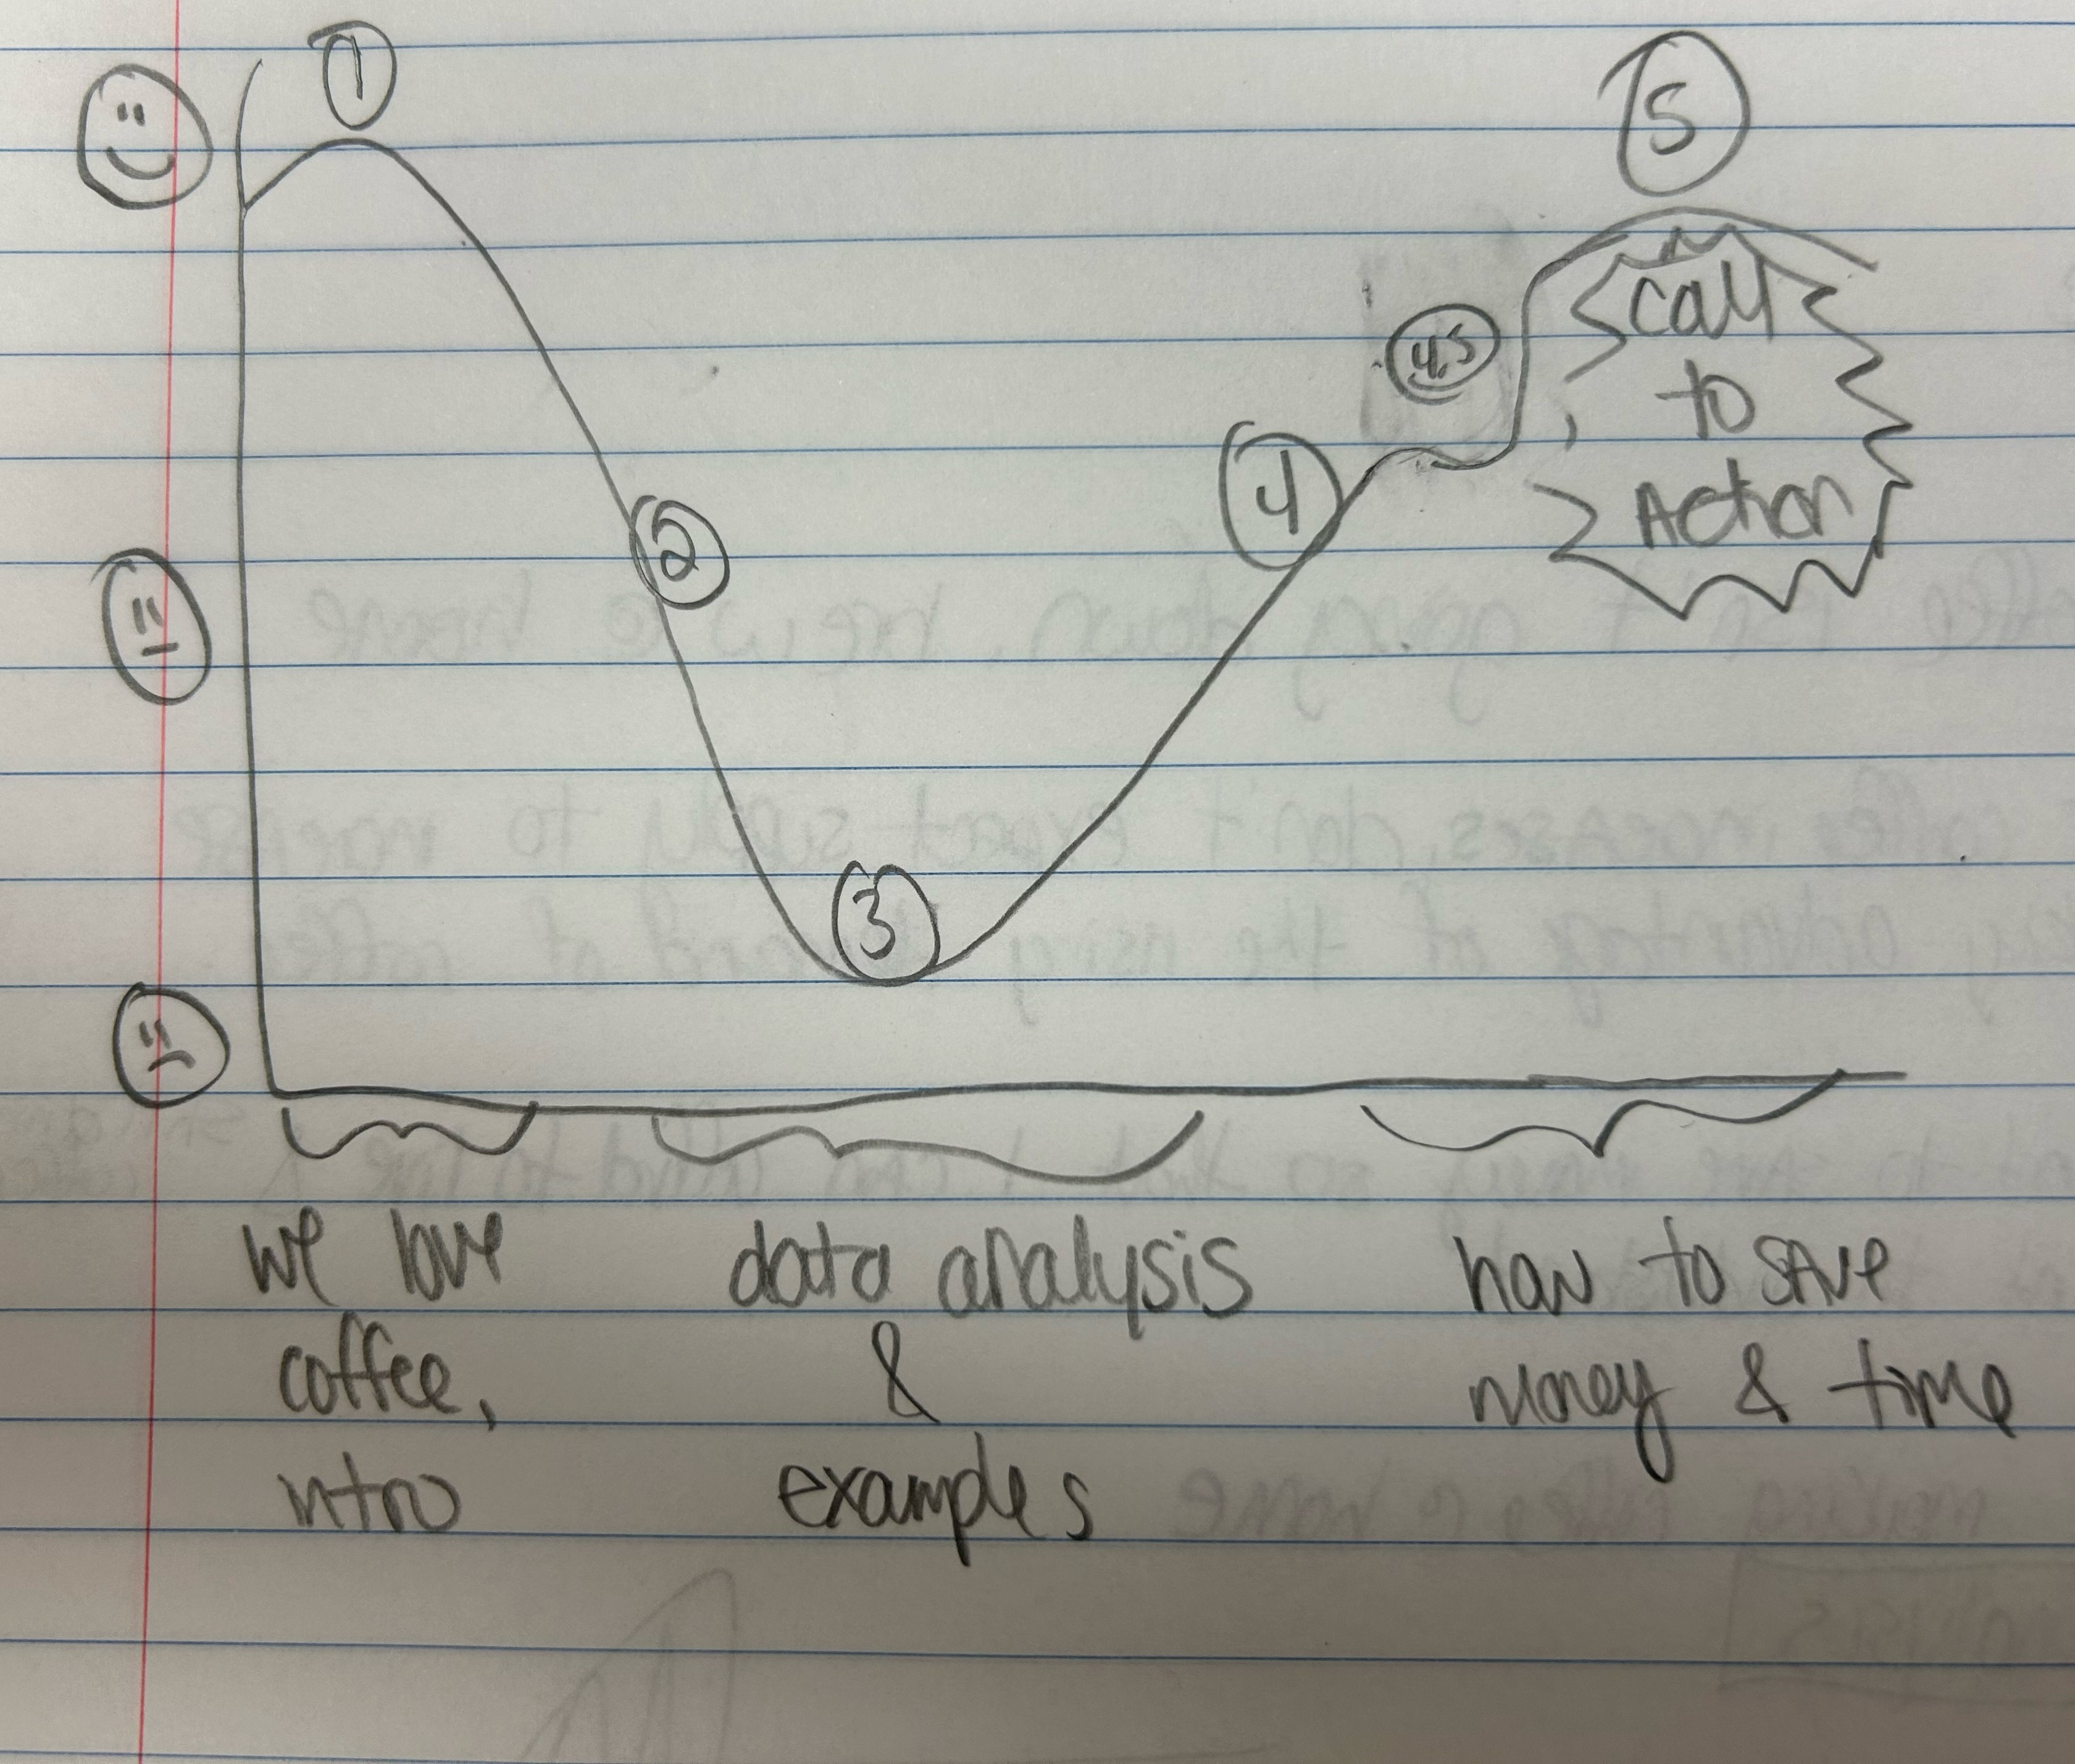 1
5
4.5
call
to
Action
4
2
3
we love
coffee,
intro
data analysis
&
examples
how to save
money & time